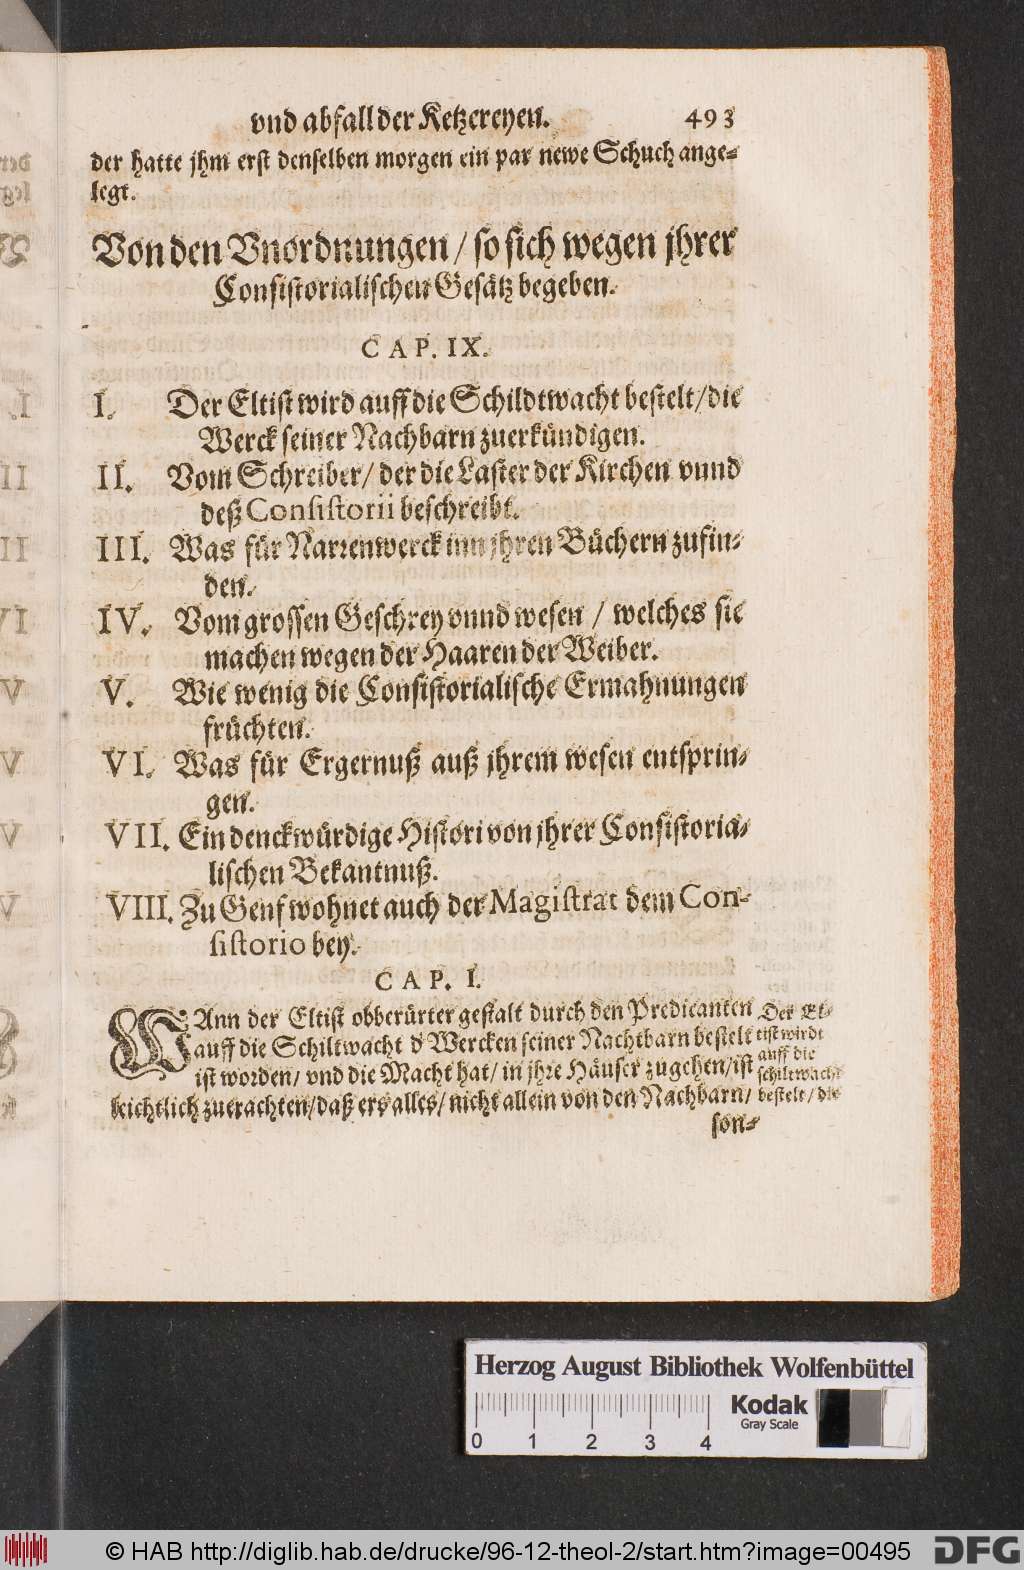 vnd abfall der Ketzereyen. 493
der hatte jhm erst denselben morgen ein par newe Schuch ange-
legt.
Von den Vnordnungen / so sich wegen jhrer
Consistorialischen Gesätz begeben.
CAP. IX.
I. Der Eltist wird auff die Schildtwacht bestelt / die
Werck seiner Nachbarn zuerkündigen.
II. Vom Schreiber / der die Laster der Kirchen vnnd
deß Consistorii beschreibt.
III. Was für Narrenwerck inn jhren Büchern zufin-
den.
IV. Vom grossen Geschrey vnnd wesen / welches sie
machen wegen der Haaren der Weiber.
V. Wie wenig die Consistorialische Ermahnungen
früchten.
VI. Was für Ergernuß auß jhrem wesen entsprin-
gen.
VII. Ein denckwürdige Histori von jhrer Consistoria-
lischen Bekantnuß.
VIII. Zu Genf wohnet auch der Magistrat dem Con-
sistorio bey.
CAP. I.
WAnn der Eltist obberürter gestalt durch den Predicanten
auff die Schiltwacht d Wercken seiner Nachtbarn bestelt
ist worden / vnd die Macht hat / in jhre Häuser zugehen / ist
leichtlich zuerachten / daß ers alles / nicht allein von den Nachbarn /
son-
Der El-
tist wirdt
auff die
schiltwacht
bestelt / die
Herzog August Bibliothek Wolfenbüttel
Kodak
Gray Scale
0 1 2 3 4
© HAB http://diglib.hab.de/drucke/96-12-theol-2/start.htm?image=00495
DFG